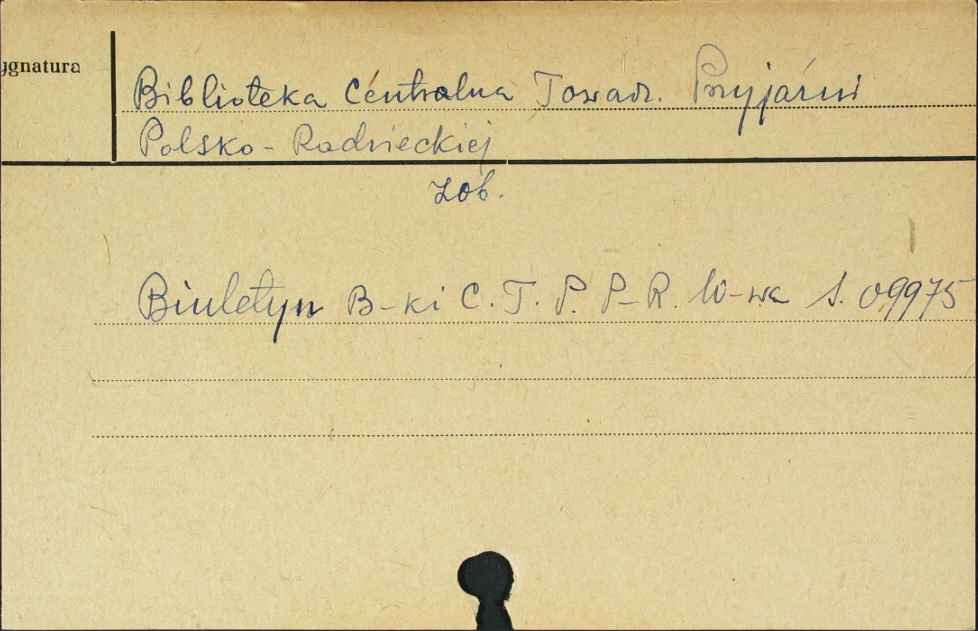 ygnatura
Biblioteka Centralna Towarz. Przyjaźni
Polsko-Radzieckiej
zob.
Biuletyn B-ki C. T. P. P-R. W-wa S. 09975